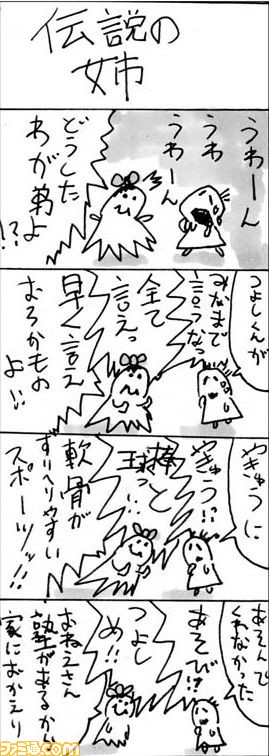 伝説の
姉
うわーん
うわ
うわーん
どうした
わが弟よ
!?
つよしくんが
みなまで
言うなっ
全て
言えっ
早く言え
おろかもの
よ!!
やきゅうに
やきゅう!?
棒と
球っ…
軟骨が
ずりへりやすい
スポーツッ!!
あそんで
くれなかった
あそび!?
つよし
め!!
おねえさん
塾があるから
家におかえり
ファミ通.com